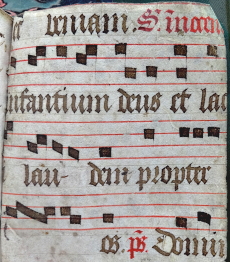 ueniam. S. innocen
infantium deus et lac
lau- dem propter
os. ps. Domin